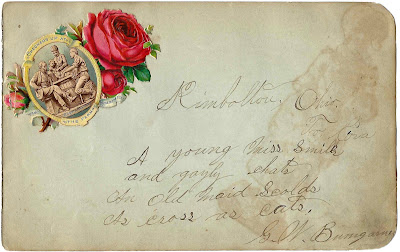 Kimbolton, Ohio.
To
A young Miss Smile
and gayly chats
An Old Maid Scolds
Is cross as cats.
G. W. Bumgarner